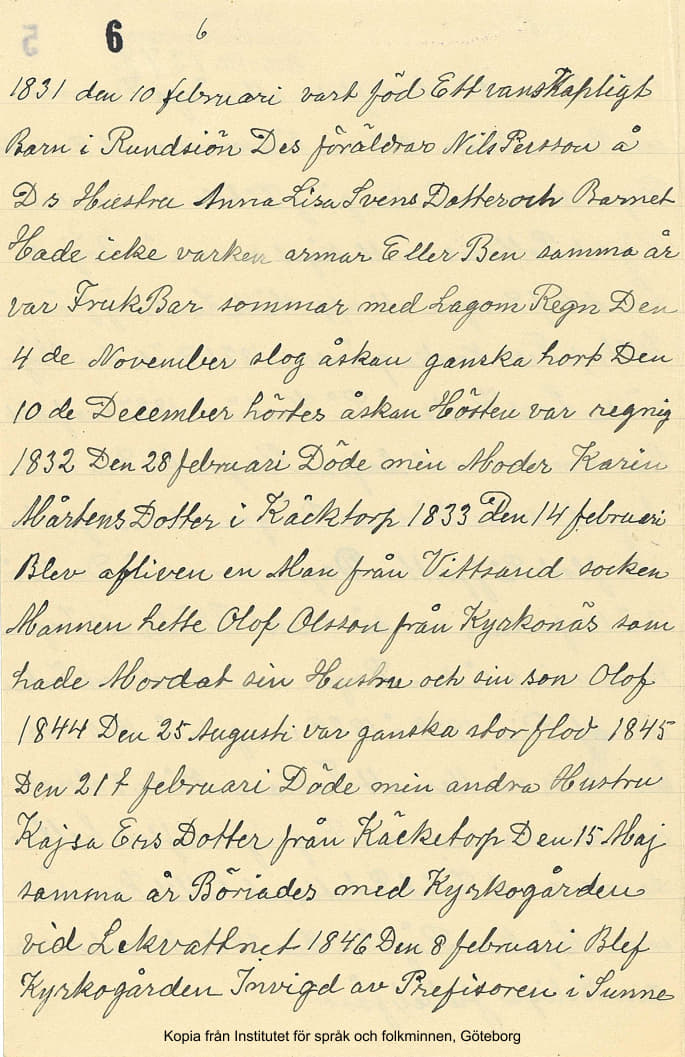 6 6
1831 den 10 februari vart föd Ett vanskapligt
Barn i Rundsiön Des föräldrar Nils Persson å
Ds Hustru Anna Lisa Svens Dotter och Barnet
Hade icke varken armar Eller Ben samma år
var FrukBar sommar med Lagom Regn Den
4 de November slog åskan ganska hort Den
10 de December hördes åskan Hösten var regnig
1832 Den 28 februari Döde min Moder Karin
Mårtens Dotter i Käcktorp 1833 den 14 februari
Blev afliven en Man från Vittsand socken
Mannen hette Olof Olsson från Kyrkonäs som
hade Mordat sin Hustru och sin son Olof
1844 Den 25 Augusti var ganska stor flod 1845
Den 21 februari Döde min andra Hustru
Kajsa Ers Dotter från Käcketorp Den 15 Maj
samma år Böriades med Kyrkogården
vid Lekvattnet 1846 Den 8 februari Blef
Kyrkogården Invigd av Prefisoren i Sunne
Kopia från Institutet för språk och folkminnen, Göteborg